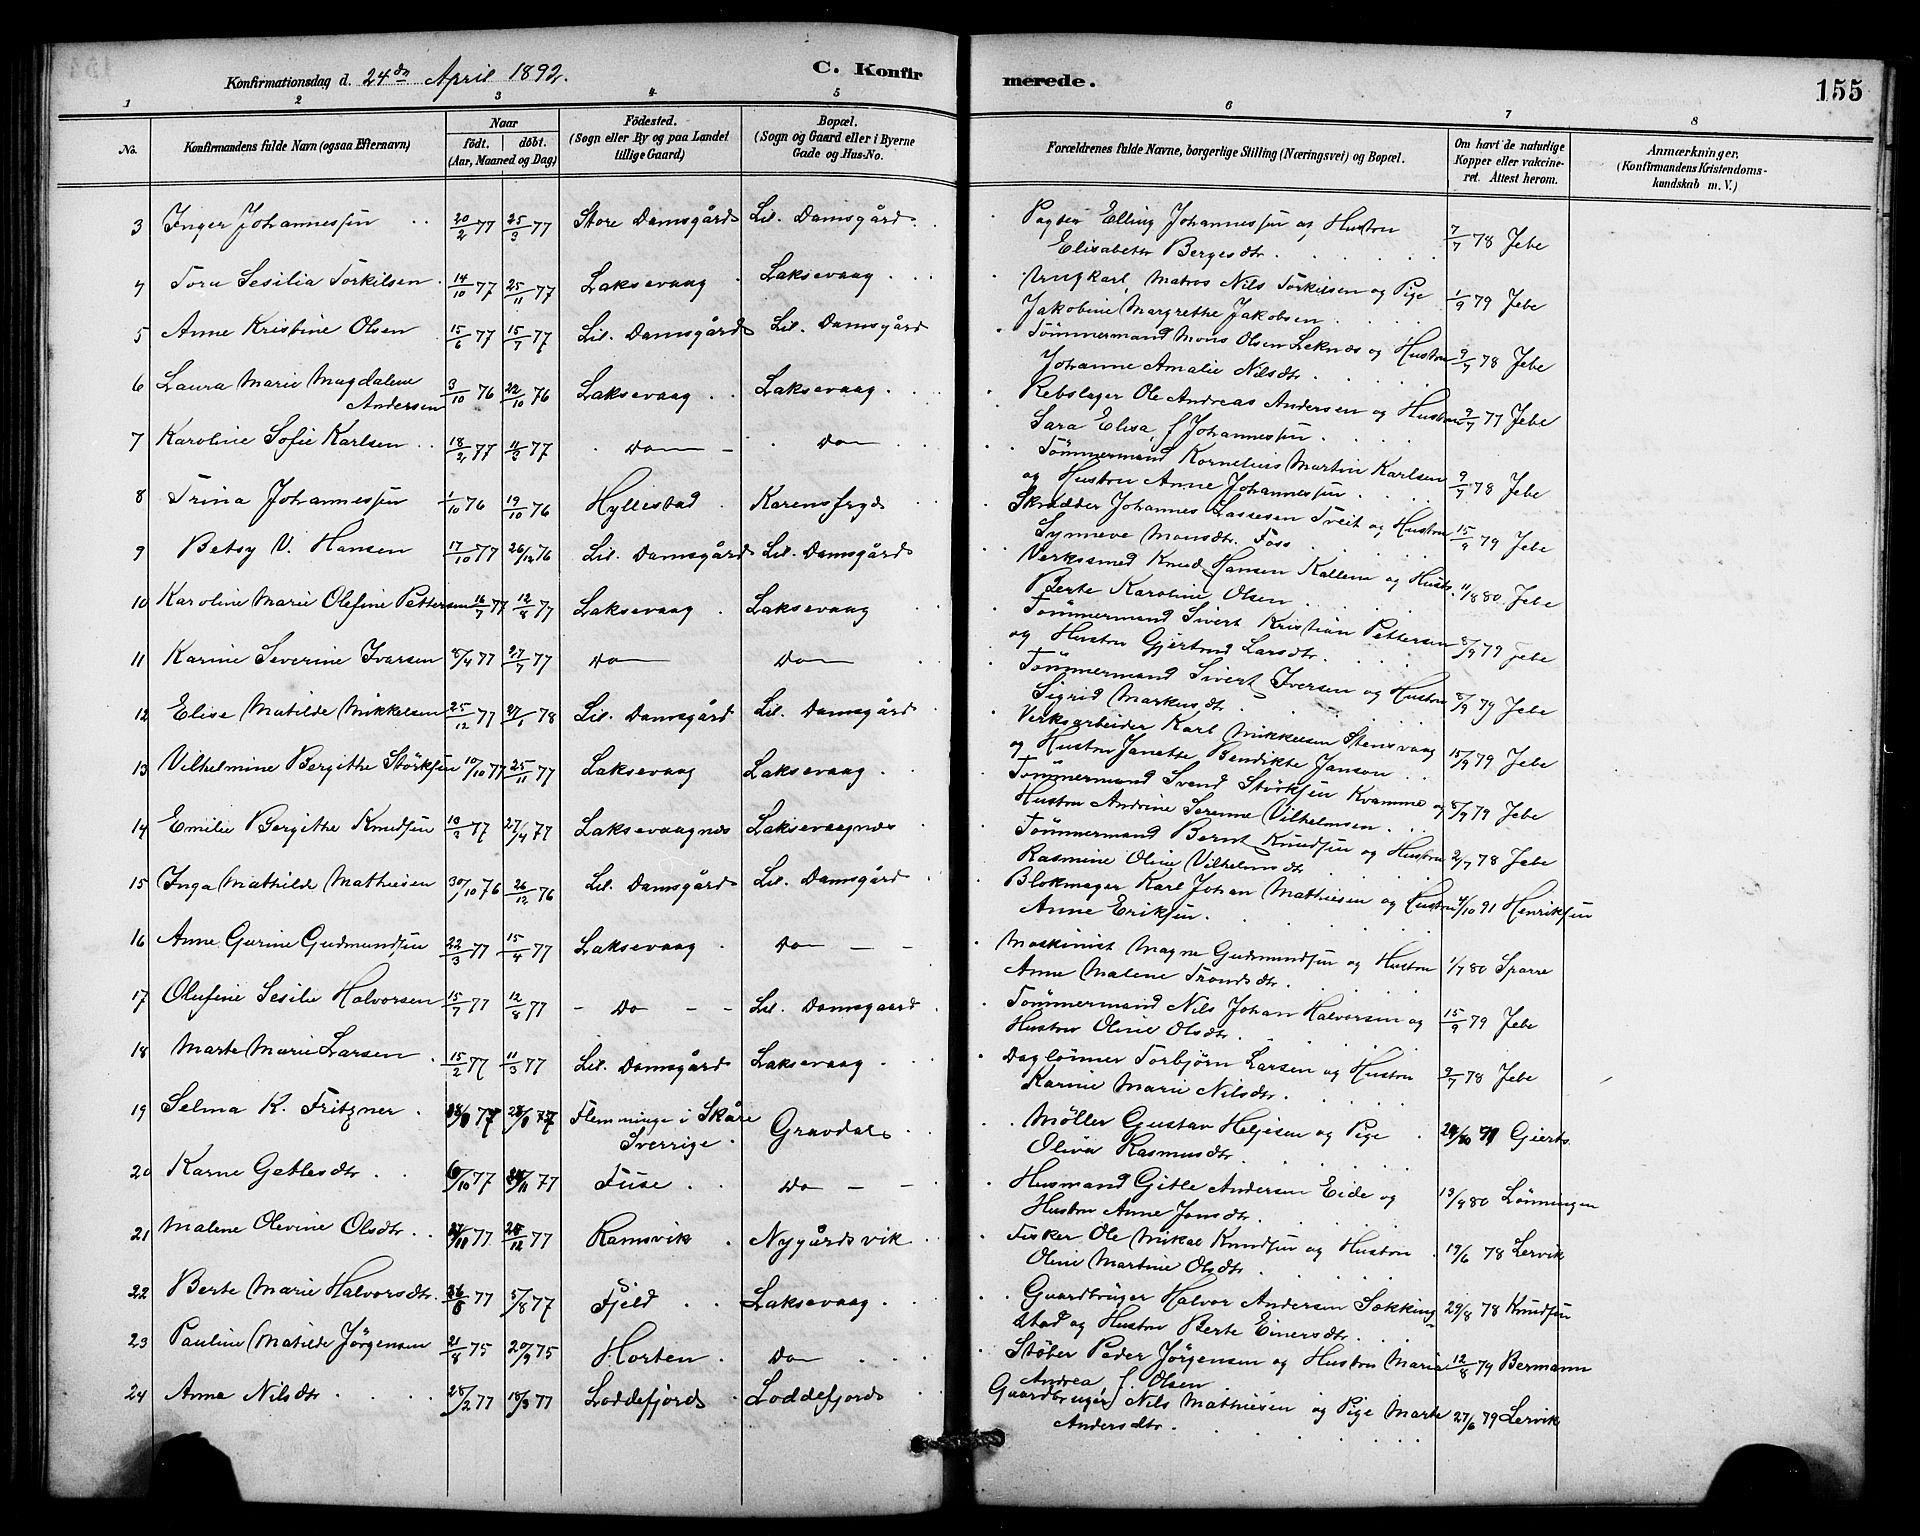 Konfirmationsdag d. 24de April 1892. C. Konfirmerede. 155
1 2 3 4 5 6 7 8
No. Konfirmandens fulde Navn (ogsaa Efternavn) Naar født. døbt. (Aar, Maaned og Dag) Fødested. (Sogn eller By og paa Landet tillige Gaard) Bopæl. (Sogn og Gaard eller i Byerne Gade og Hus-No. Forældrenes fulde Navne, borgerlige Stilling (Næringsvei) og Bopæl. Om havt de naturlige Kopper eller vakcineret. Attest herom. Anmærkninger. (Konfirmandens Kristendomskundskab m. V.)
3 Inger Johannessen 20/2 77 25/3 77 Store Damsgård Lil. Damsgård Pagter Elling Johannessen og Hustru
Elisabeth Bergesdtr. 7/7 78 Jebe
4 Tora Sesilia Torkilsen 14/10 77 25/11 77 Laksevaag Laksevaag Ungkarl, Matros Nils Torkilsen og Pige
Jakobine Margrethe Jakobsen 1/9 79 Jebe
5 Anne Kristine Olsen 15/6 77 15/7 77 Lil. Damsgård Lil. Damsgård Tömmermand Mons Olsen Leknes og Hustru
Johanne Amalie Nilsdtr 9/7 78 Jebe
6 Laura Marie Magdalene
Andersen 3/10 76 22/10 76 Laksevaag Laksevaag Rebslager Ole Andreas Andersen og Hustru
Sara Elisa, f Johannessen 9/7 77 Jebe
7 Karoline Sofie Karlsen 18/2 77 11/3 77 Do Do Tömmermand Kornelius Martin Karlsen
og Hustru Anne Johannessen 9/7 78 Jebe
8 Trina Johannessen 1/10 76 19/10 76 Hyllestad Karensfryd Skrædder Johannes Lassesen Tveit og Hustru
Synneve Monsdtr. Foss 15/9 79 Jebe
9 Betsy V. Hansen 17/10 77 26/12 76 Lil. Damsgård Lil. Damsgård Verkssmed Knud Hansen Kallem og Hustr.
Berte Karoline Olsen 11/8 80 Jebe
10 Karoline Marie Olefine Pettersen 16/7 77 12/8 77 Laksevaag Laksevaag Tömmermand Sivert Kristian Pettersen
og Hustru Gjertrud Larsdtr. 8/9 79 Jebe
11 Karine Severine Ivarsen 8/4 77 27/7 77 Do Do Tömmermand Sivert Iversen og Hustru
Sigrid Markusdtr 8/9 79 Jebe
12 Elise Matilde Mikkelsen 25/12 77 27/1 78 Lil. Damsgård Lil. Damsgård Verksarbeider Karl Mikkelsen Stensvaag
og Hustru Janette Bendikte Janson 15/9 79 Jebe
13 Vilhelmine Bergitte Störksen 10/10 77 25/11 77 Laksevaag Laksevaag Tömmermand Svend Störksen Kvamme og
Hustru Andrine Serenne Vilhelmsen 8/9 79 Jebe
14 Emilie Bergithe Knudsen 10/2 77 27/4 77 Laksevaagnes Laksevaagnes Tömmermand Bernt Knudsen og Hustru
Rasmine Oline Vilhelmsdtr 2/7 78 Jebe
15 Inga Mathilde Mathiesen 30/10 76 26/12 76 Lil. Damsgård Lil. Damsgård Blokmager Karl Johan Mathiesen og Hustru
Anne Eriksen 4/10 91 Henriksen
16 Anne Gurine Gudmundsen 22/3 77 15/4 77 Laksevaag Do Maskinist Magne Gudmundsen og Hustru
Anne Malene Trondsdtr. 1/7 80 Sparre
17 Olufine Sesilie Halvorsen 15/7 77 12/8 77 Do Lil. Damsgaard Tömmermand Nils Johan Halvorsen og
Hustru Oline Olsdtr. 15/9 79 Jebe
18 Marte Marie Larsen 15/2 77 11/3 77 Lil. Damsgård Laksevaag Daglönner Torbjörn Larsen og Hustru
Karine Marie Nilsdtr. 9/7 78 Jebe
19 Selma K. Fritzner 77 77 Flemminge i Skåre
Sverrige Gravdal Møller Gustav Heljesen og Pige
Oliva Rasmusdtr. 91 Gierts
20 Karne Getlesdtr 6/10 77 77 Fuse Do Husmand Gitle Andersen Eide og
Hustru Anne Jonsdtr. 13/9 80 Lönningen
21 Malene Olevine Olsdtr. 77 77 Ramsvik Nygårdsvik Fisker Ole Mikal Knudsen og Hustru
Oline Martine Olsdtr. 19/6 78 Lervik
22 Berte Marie Halvorsdtr. 77 5/8 77 Fjeld Laksevaag Gaardbruger Halvor Andersen Sækking-
stad og Hustru Berte Einersdtr. 29/8 78 Knudsen
23 Pauline Matilde Jörgensen 21/8 75 20/9 75 Horten Do Stöber Peder Jörgensen og Hustru Maria
Andrea f. Olsen 12/8 79 Bermann
24 Anna Nilsdtr 28/2 77 18/3 77 Loddefjord Loddefjord Gaardbruger Nils Mathiesen og Pige Marte
Andersdtr. 27/6 79 Lervik